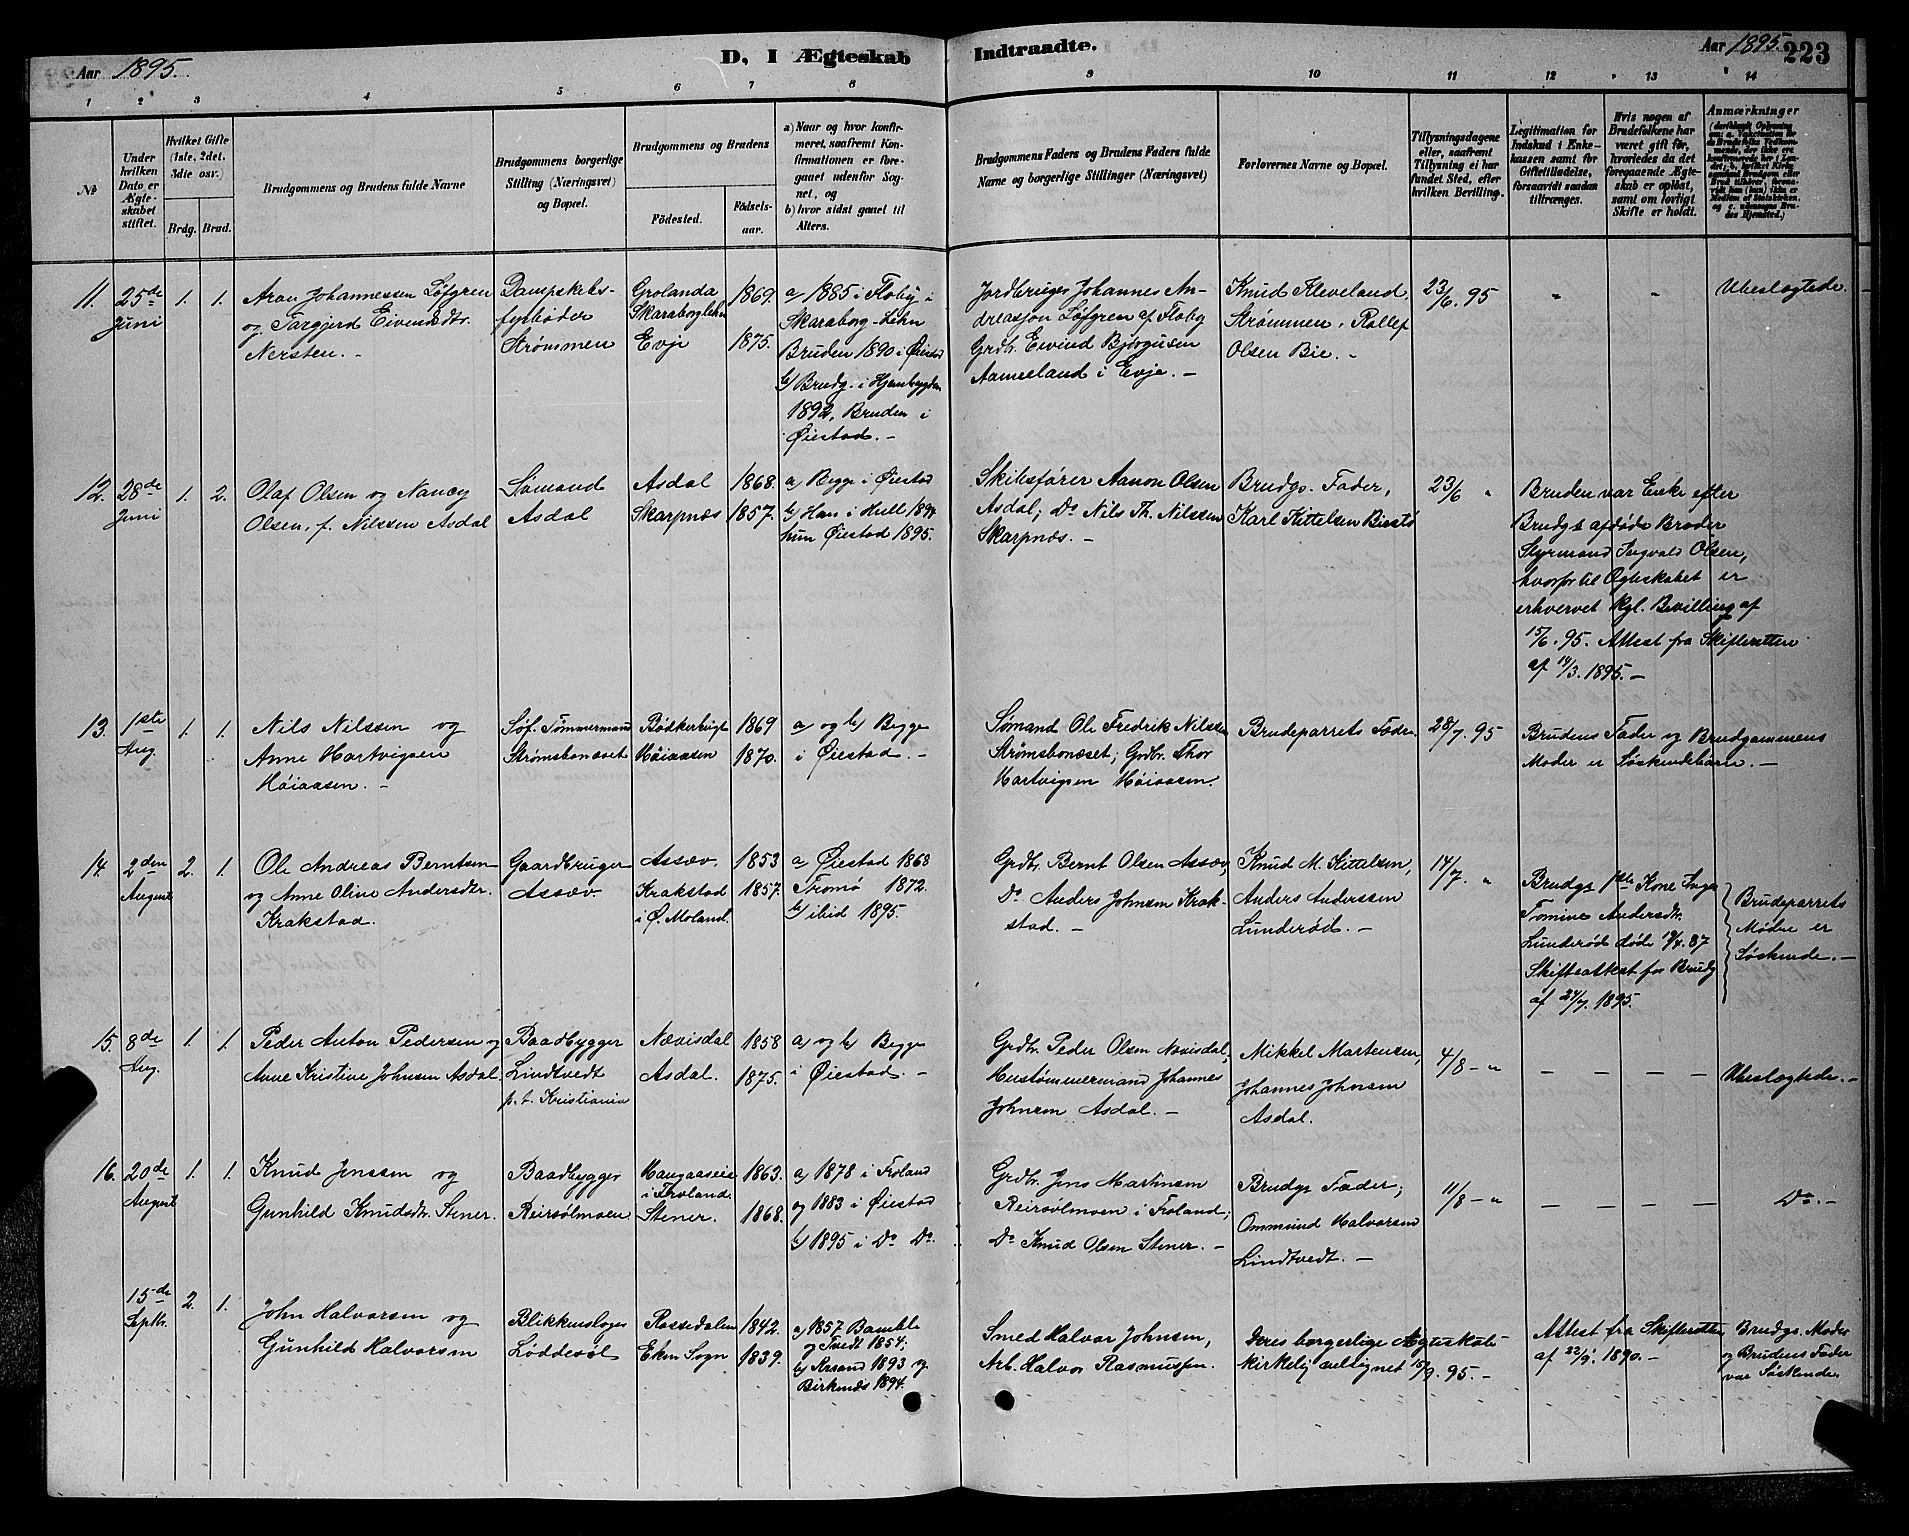 Aar 1895.
D, I Ægteskab Indtraadte.
Aar 1895. 223
1 2 3 4 5 6 7 8 9 10 11 12 13 14
No
Under hvilken Dato er Ægteskabet stiftet.
Hvilket Gifte (1ste, 2det, 3die osv.)
Brdg. Brud.
Brudgommens og Brudens fulde Navne
Brudgommens borgerlige Stilling (Næringsvei) og Bopæl.
Brudgommens og Brudens
Fødested. Fødselsaar.
a) Naar og hvor konfirmeret, saafremt Konfirmationen er foregaaet udenfor Sognet, og
b) hvor sidst gaaet til Alters.
Brudgommens Faders og Brudens Faders fulde Navne og borgerlige Stillinger (Næringsvei)
Forlovernes Navne og Bopæl.
Tillysningsdagene eller, saafremt Tillysning ei har fundet Sted, efter hvilken Bevilling.
Legitimation for Indskud i Enkekassen samt for Giftetilladelse, forsaavidt saadan tiltrænges.
Hvis nogen af Brudefolkene har været gift før, hvorledes da det foregaaende Ægteskab er opløst, samt om lovligt Skifte er holdt.
Anmærkninger
11. 25de Juni 1. 1.
Aron Johannessen Löfgren
og Targjerd Eivendsdtr.
Nersten. -
Dampskibs-
fyrbøder
Strømmen
Grolanda
Skaraborglehn
Evje
1869.
1875.
a/ 1885 i Floby i
Skaraborg-Lehn
Bruden 1890 i Øiestad
b/ Brudg. i
1892, Bruden i
Øiestad. -
Jordbruger Johannes An-
dreasson Löfgren af Floby
Grdbr. Eivind Bjørgusen
Aameland i Evje. -
Knud Kleveland,
Strømmen, Rollef
Olsen Bie. -
23/6. 95
" "
Ubeslægtede.
12. 28de Juni 1. 2.
Olaf Olsen og Nancy
Olsen, f. Nilssen Asdal
Sømand
Asdal
Asdal
Skarpnæs
1868.
1857.
a/ Begge i Øiestad
b/ Han i Hull 1894
hun Øiestad 1895.
Skibsfører Aanon Olsen
Asdal; Do Nils Th. Nilssen
Skarpnæs. -
Brudgs. Fader,
Karl Kittelsen Biestø
23/6 "
Bruden var Enke efter
Brudgs afdøde Broder
Styrmand Ingvald Olsen,
hvorfor til Ægteskabet er
erhvervet kgl. Bevilling af
15/6. 95. Attest fra Skifteretten
af 14/3. 1895. -
13. 1ste Aug. 1. 1.
Nils Nilssen og
Anne Hartvigsen
Høiaasen. -
Søf. Tømmermand
Strømsbonæset
Bødkerbugt
Høiaasen
1869
1870.
a/ og b/ Begge
i Øiestad. -
Sømand Ole Fredrik Nilssen
Strømsbonæset; Grdbr. Thor
Hartvigsen Høiaasen.
Brudeparrets Fædre
28/7. 95
Brudens Fader og Brudgommens
Moder er Søskendebarn. -
14. 2den August 2. 1.
Ole Andreas Berntsen
og Anne Oline Andersdtr.
Krakstad.
Gaardbruger
Assæv.
Assæv.
Krakstad
i Ø. Moland.
1853
1857.
a/ Øiestad 1868
Tromø 1872.
b/ ibid 1895.
Grdbr. Bernt Olsen Assæv,
Do Anders Johnsen Krak-
stad. -
Knud M. Kittelsen,
Anders Anderssen
Lunderød. -
14/7. "
Brudgs 1ste Kone Inger
Tomine Andersdtr.
Lunderød døde 19/4. 87
Skifteattest for Brudg
af 24/7. 1895.
Brudeparrets
Mødre er
Søskende. -
15. 8de Aug. 1. 1.
Peder Anton Pedersen og
Anne Kristine Johnsen Asdal
Baadbygger
Lindtvedt
p.t. Kristiania
Nævisdal
Asdal.
1858
1875.
a/ og b/ Begge
i Øiestad. -
Grdbr. Peder Olsen Nævisdal,
Hustømmermand Johannes
Johnsen Asdal. -
Mikkel Martensen,
Johannes Johnsen
Asdal.
4/8 - "
- - - -
Ubeslægtede. -
16. 20de August 1. 1.
Knud Jenssen og
Gunhild Knudsdtr. Stener.
Baadbygger
Reirsølmoen
Haugaaseie
i Froland.
Stener.
1863.
1868.
a/ 1878 i Froland
og 1883 i Øiestad
b/ 1895 i Do Do.
Grdbr. Jens Martinsen
Reirsølmoen i Froland;
Do Knud Olsen Stener. -
Brudgs Fader;
Ommund Halvorsen
Lindtvedt. -
11/8 - "
- - - -
Do. -
15de Septbr. 2. 1.
John Halvorsen og
Gunhild Halvorsen
Blikkenslager
Løddesøl
Rossedalen
Eken Sogn
1842.
1839.
a/ 1857 Bamble
og Tvedt 1854;
b/ 1893 og
Birkenæs 1894.
Smed Halvor Johnsen,
Arb. Halvor Rasmussen.
Deres borgerlige Ægteskab
kirkelig velsignet 15/9. 95. -
Attest fra Skifteretten
af 22/9. 1890. -
Brudgs. Moder
og Brudens Fader
var Søskende.